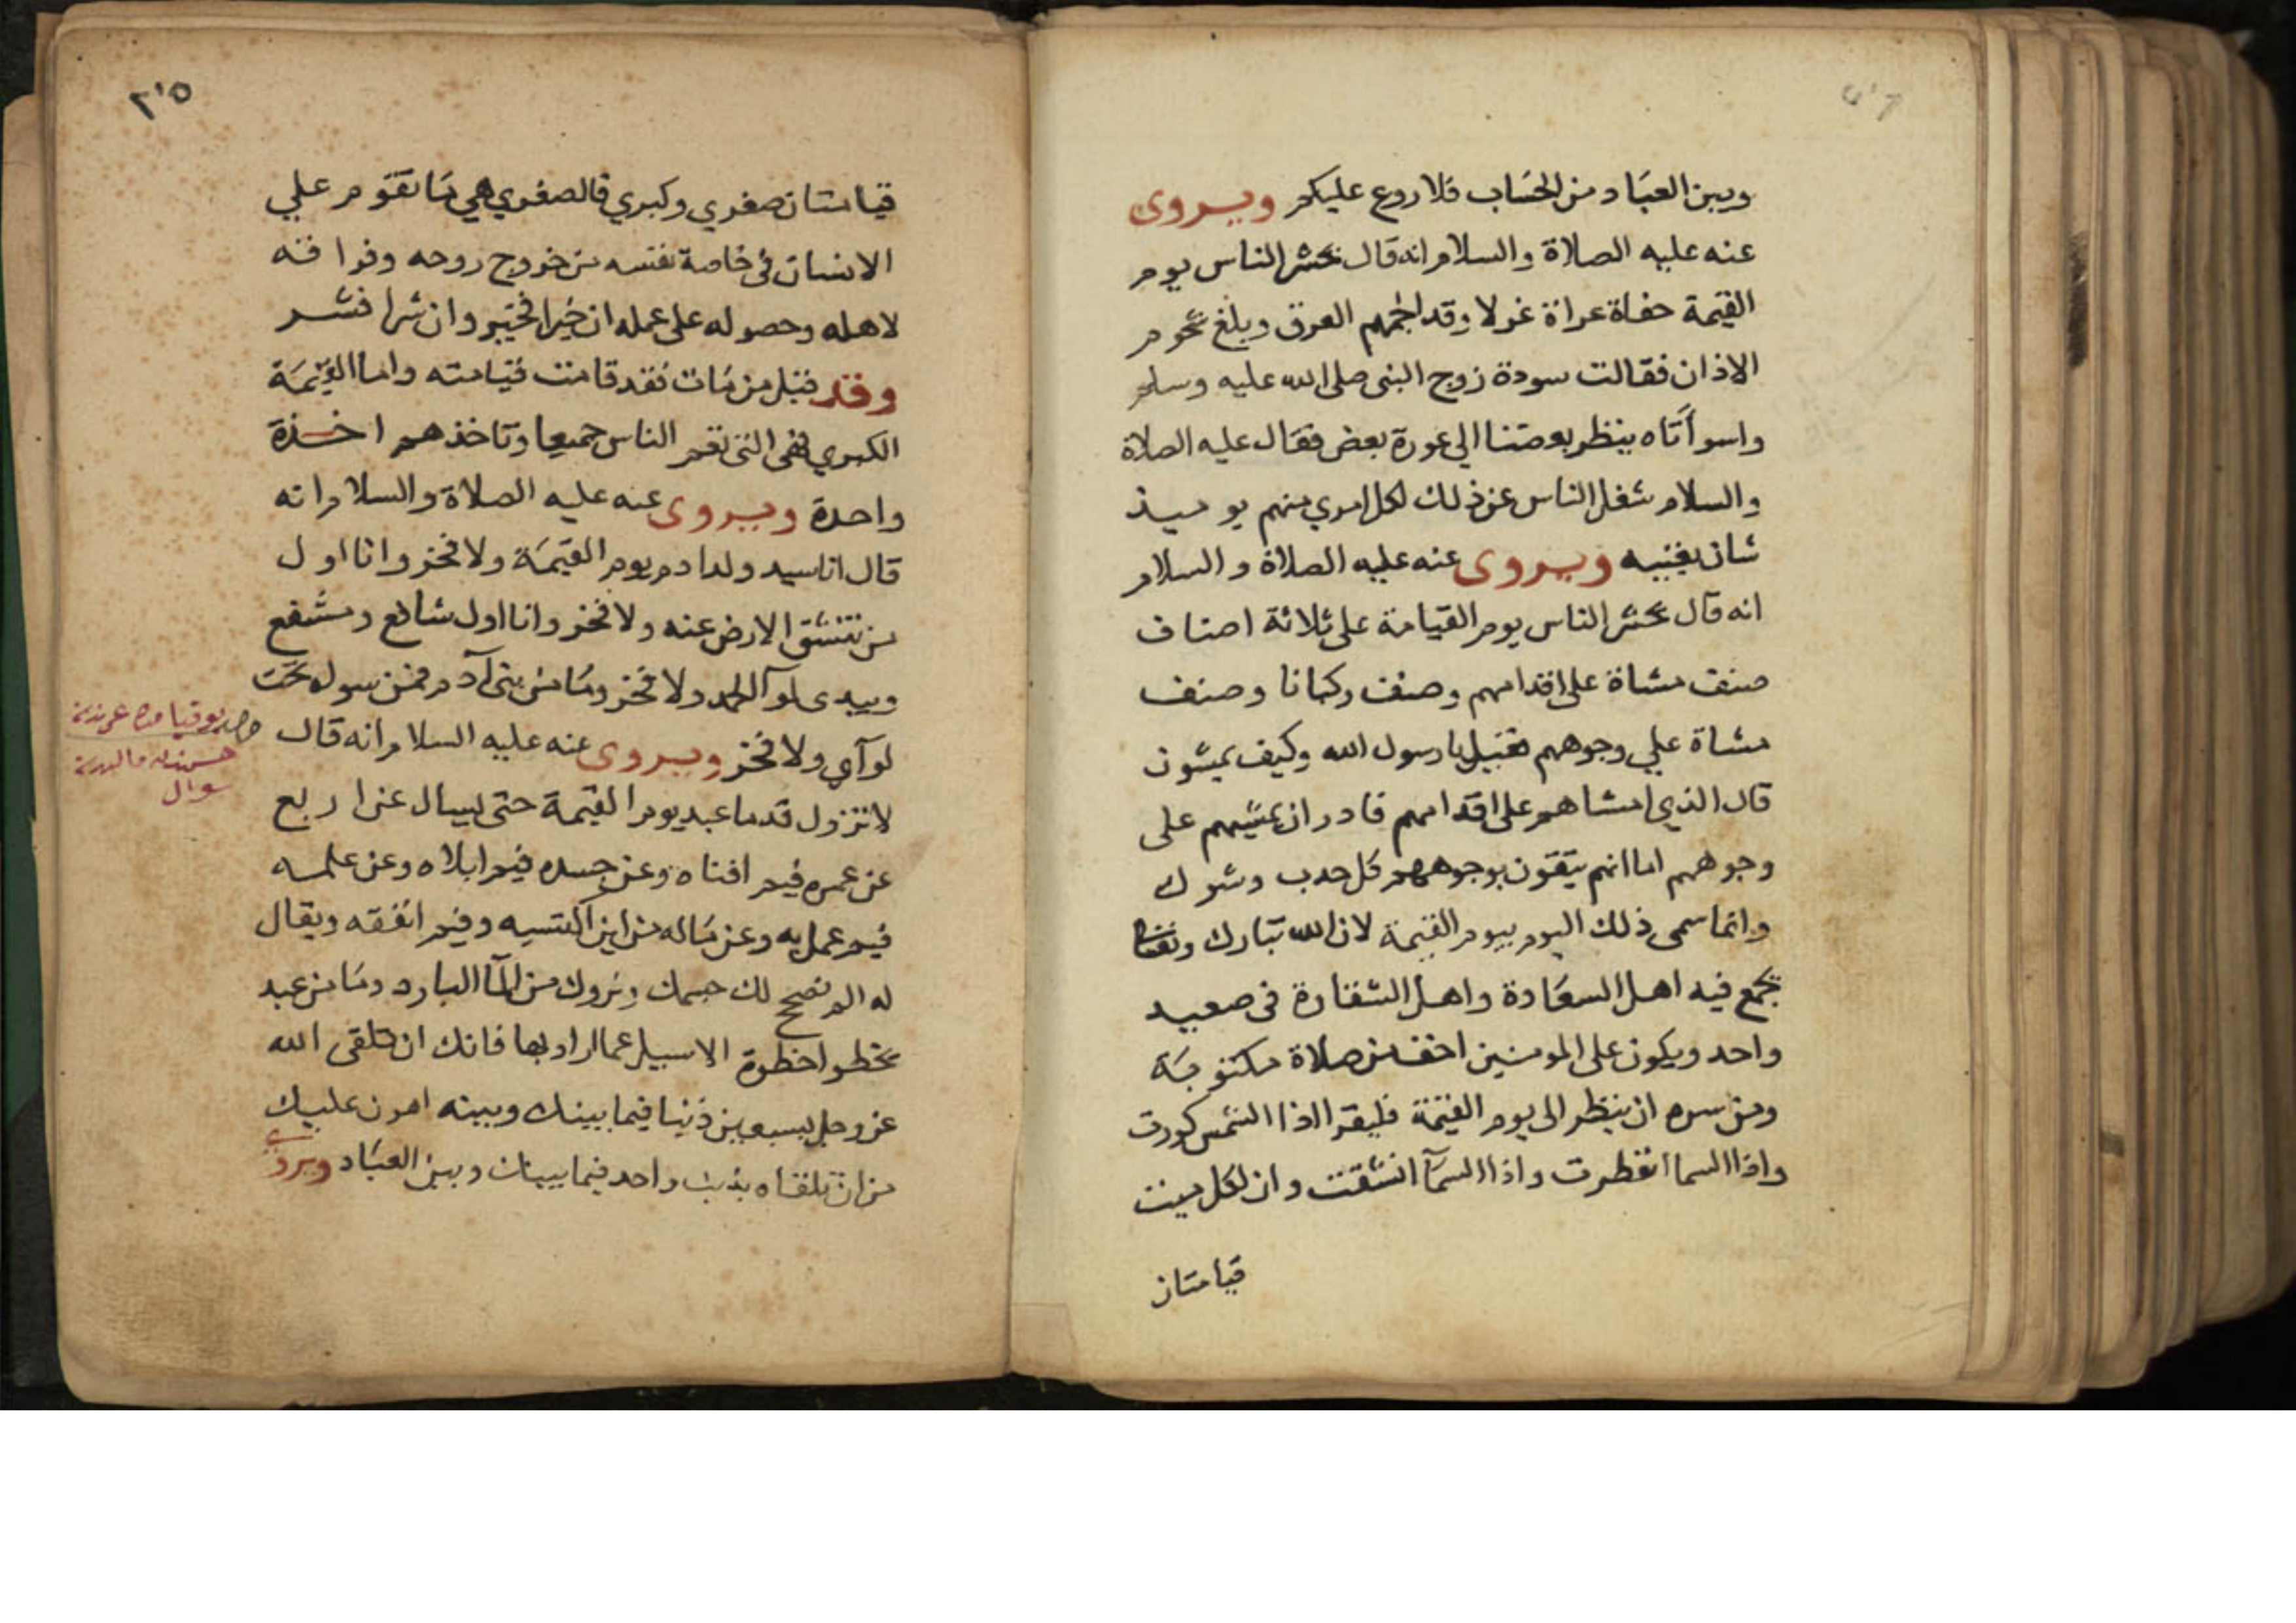 وبين العباد من الحساب فلا روع عليكم ويروى
عنه عليه الصلاة والسلام انه قال يحشر الناس يوم
القيمة حفاة عراة غرلا وقد الجمهم العرق وبلغ شحوم
الاذان فقالت سودة زوج النبى صلى الله عليه وسلم
واسوأتاه ينظر بعضنا الي عورة بعض فقال عليه الصلاة
والسلام شغل الناس عن ذلك لكل امري منهم يوميذ
شان يغنيه ويروى عنه عليه الصلاة والسلام
انه قال يحشر الناس يوم القيامة على ثلاثة اصناف
صنف مشاة على اقدامهم وصنف ركبانا وصنف
مشاة علي وجوههم فقيل يا رسول الله وكيف يمشون
قال الذي امشاهم على اقدامهم قادر ان يمشيهم على
وجوههم اما انهم يتقون بوجوههم كل حدب وشوك
وانما سمى ذلك اليوم بيوم القيمة لان الله تبارك وتعالى
يجمع فيه اهل السعادة واهل الشقاوة فى صعيد
واحد ويكون على المومنين اخف من صلاة مكتوبة
ومن سره ان ينظر الى يوم القيمة فليقرا اذا الشمس كورت
واذا السما انفطرت واذا السمآ انشقت وان لكل ميت
قيامتان
٢٠٥
قيامتان صغري وكبري فالصغري هي ما تقوم علي
الانسان فى خاصة نفسه من خروج روحه وفراقه
لاهله وحصوله على عمله ان خيرا فخير وان شرا فشر
وقد قيل من مات فقد قامت قيامته واما القيمة
الكبري فهى التى تقم الناس جميعا وتاخذهم اخذة
واحدة ويروى عنه عليه الصلاة والسلام انه
قال انا سيد ولد ادم يوم القيمة ولا فخر وانا اول
من تنشق الارض عنه ولا فخر وانا اول شافع ومشفع
وبيدى لوآ الحمد ولا فخر وما من بنى آدم فمن سوله تحت
لوآي ولا فخر ويروى عنه عليه السلام انه قال
لا تزول قدما عبد يوم القيمة حتى يسال عن اربع
عن عمره فيم افناه وعن جسده فيم ابلاه وعن علمه
فيم عمل به وعن ماله من اين اكتسبه وفيم انفقه ويقال
له الم نصح لك جسمك ونروك من المآ البارد وما من عبد
يخطو اخطوة الا سيل عما اراد بها فانك ان تلقى الله
عز وجل بسبعين ذنبا فيما بينك وبينه اهون عليك
من ان تلقاه بذنب واحد فيما بينك وبين العباد ويروى
سوال